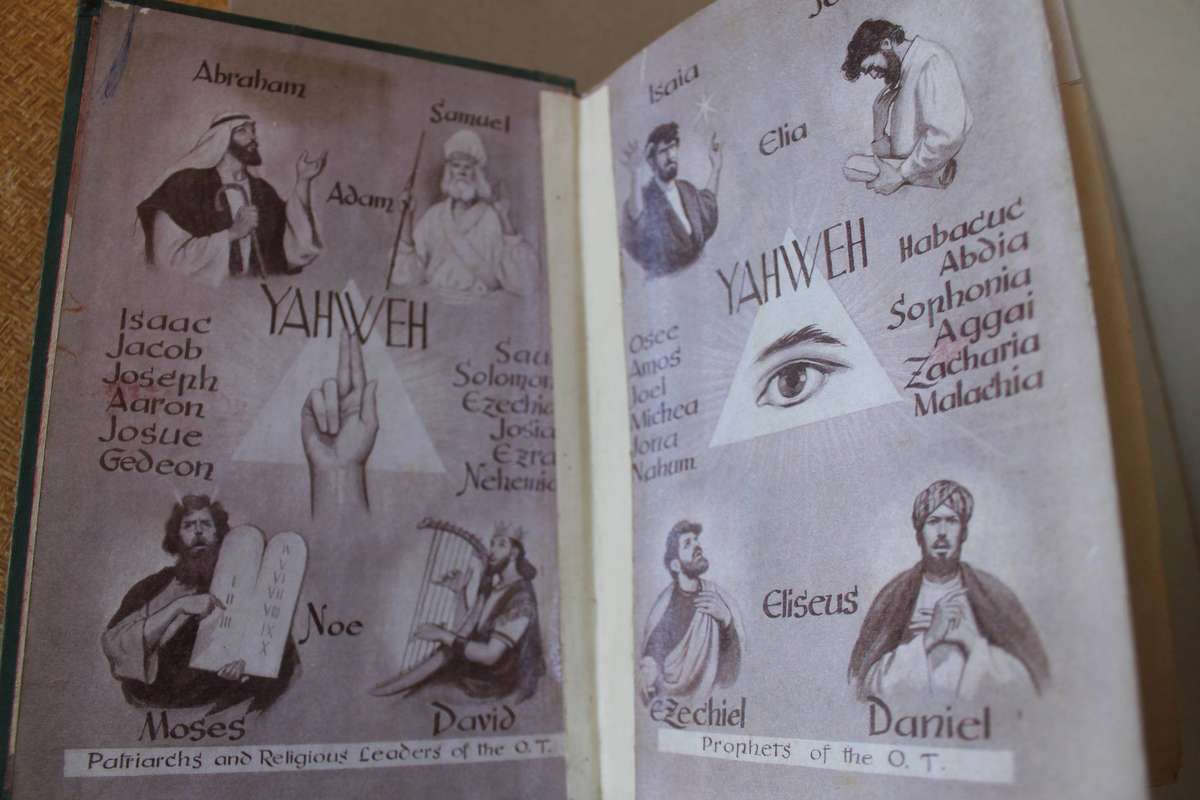 Abraham
Samuel
Adam
YAHWEH
Isaac
Jacob
Joseph
Aaron
Josue
Gedeon
Solomon
Ezra
I
II
III
V
VI
VII
VIII
IX
X
Noe
Moses
David
Patriarchs and Religious Leaders of the O. T.
Isaia
Elia
YAHWEH
Osee
Amos
Joel
Michea
Jona
Nahum
Habacuc
Abdia
Sophonia
Aggai
Zacharia
Malachia
Eliseus
Ezechiel
Daniel
Prophets of the O. T.